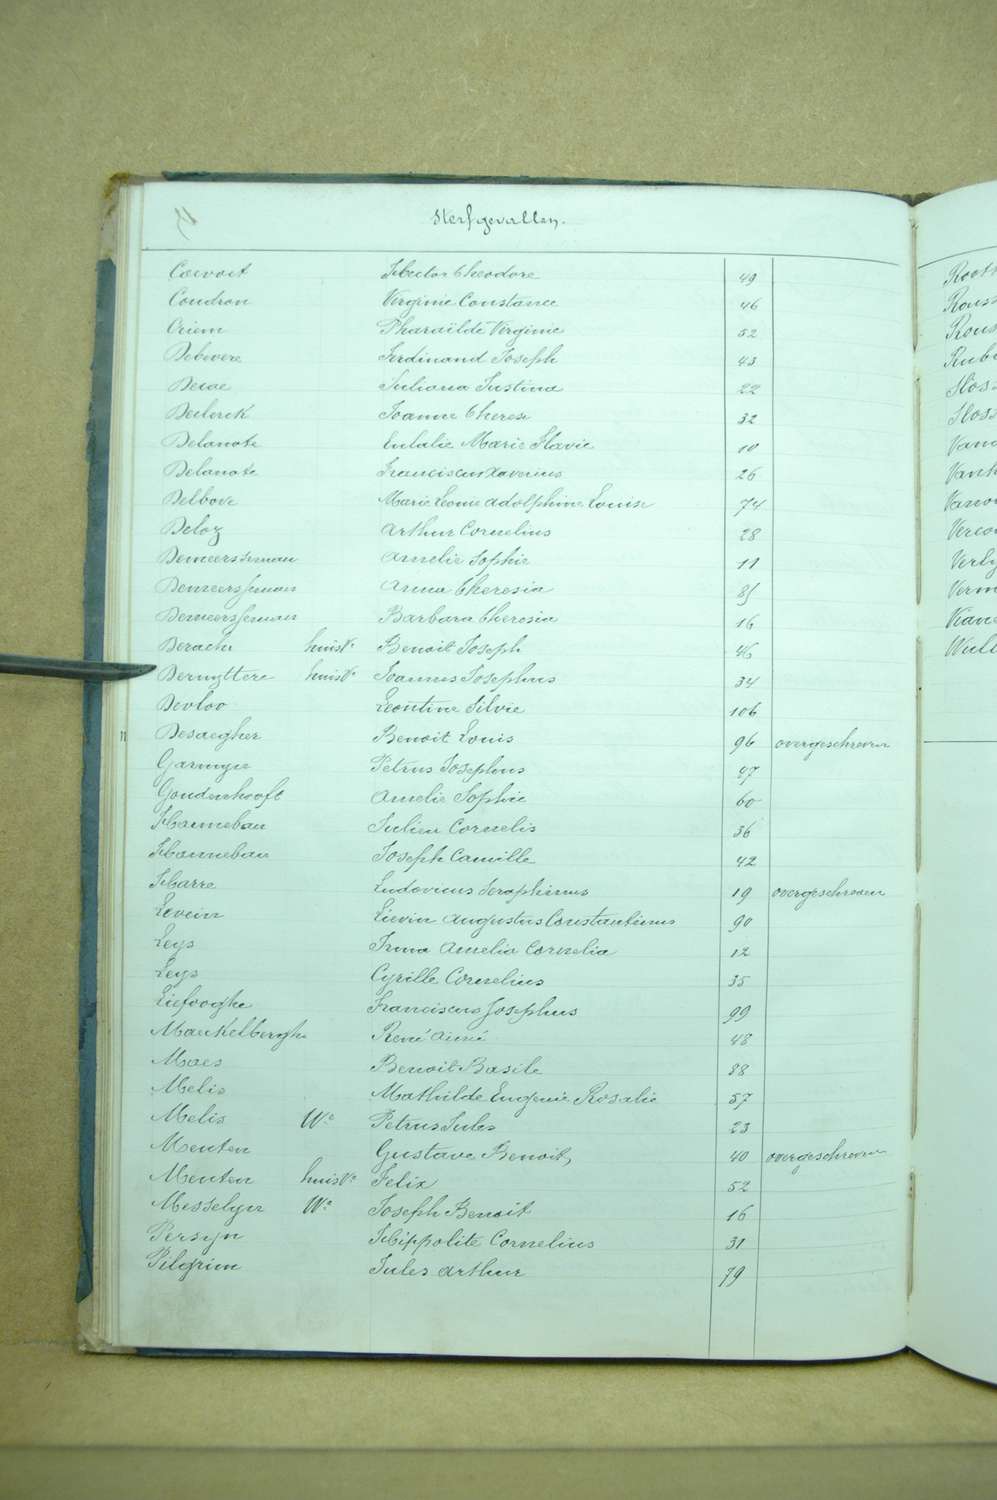 Sterfgevallen.
Coevoit Hector Theodore 49
Coudron Virginie Constance 46
Criem Pharaïlde Virginie 52
Debevere Ferdinand Joseph 43
Juliana Justina 22
Declerck Joanna Theresi 32
Delanote Eulalie Marie Flavie 10
Delanote Franciscus Xaverius 26
Delbove Marie Leonie Adolphine Louise 74
Deloz Arthur Cornelius 28
Demeersseman Amelie Sophie 11
Demeersseman Anna Theresia 85
Demeersseman Barbara Theresia 16
huisVe Benoit Joseph 46
Deruyttere huisVe Joannes Josephus 34
Devloo Leontine Silvie 106
Desaegher Benoit Louis 96 overgeschreven
Garmyn Petrus Josephus 47
Goudenhooft Amelie Sophie 60
Hannebau Julien Cornelis 36
Hannebau Joseph Camille 42
Harre Ludovicus Seraphinus 19 overgeschreven
Levein Lievin Augustus Constantinus 90
Leys Irma Amelia Cornelia 12
Leys Cyrille Cornelius 35
Liefooghe Franciscus Josephus 99
Maekelbergh René Aimé 48
Maes Benoit Basile 88
Melis Mathilde Eugenie Rosalie 57
Melis We Petrus Jules 23
Menten Gustave Benoit 40 overgeschreven
Menten huisVe Felix 52
Messelyn We Joseph Benoit 16
Persyn Hippolite Cornelius 31
Pilgrim Jules Arthur 79